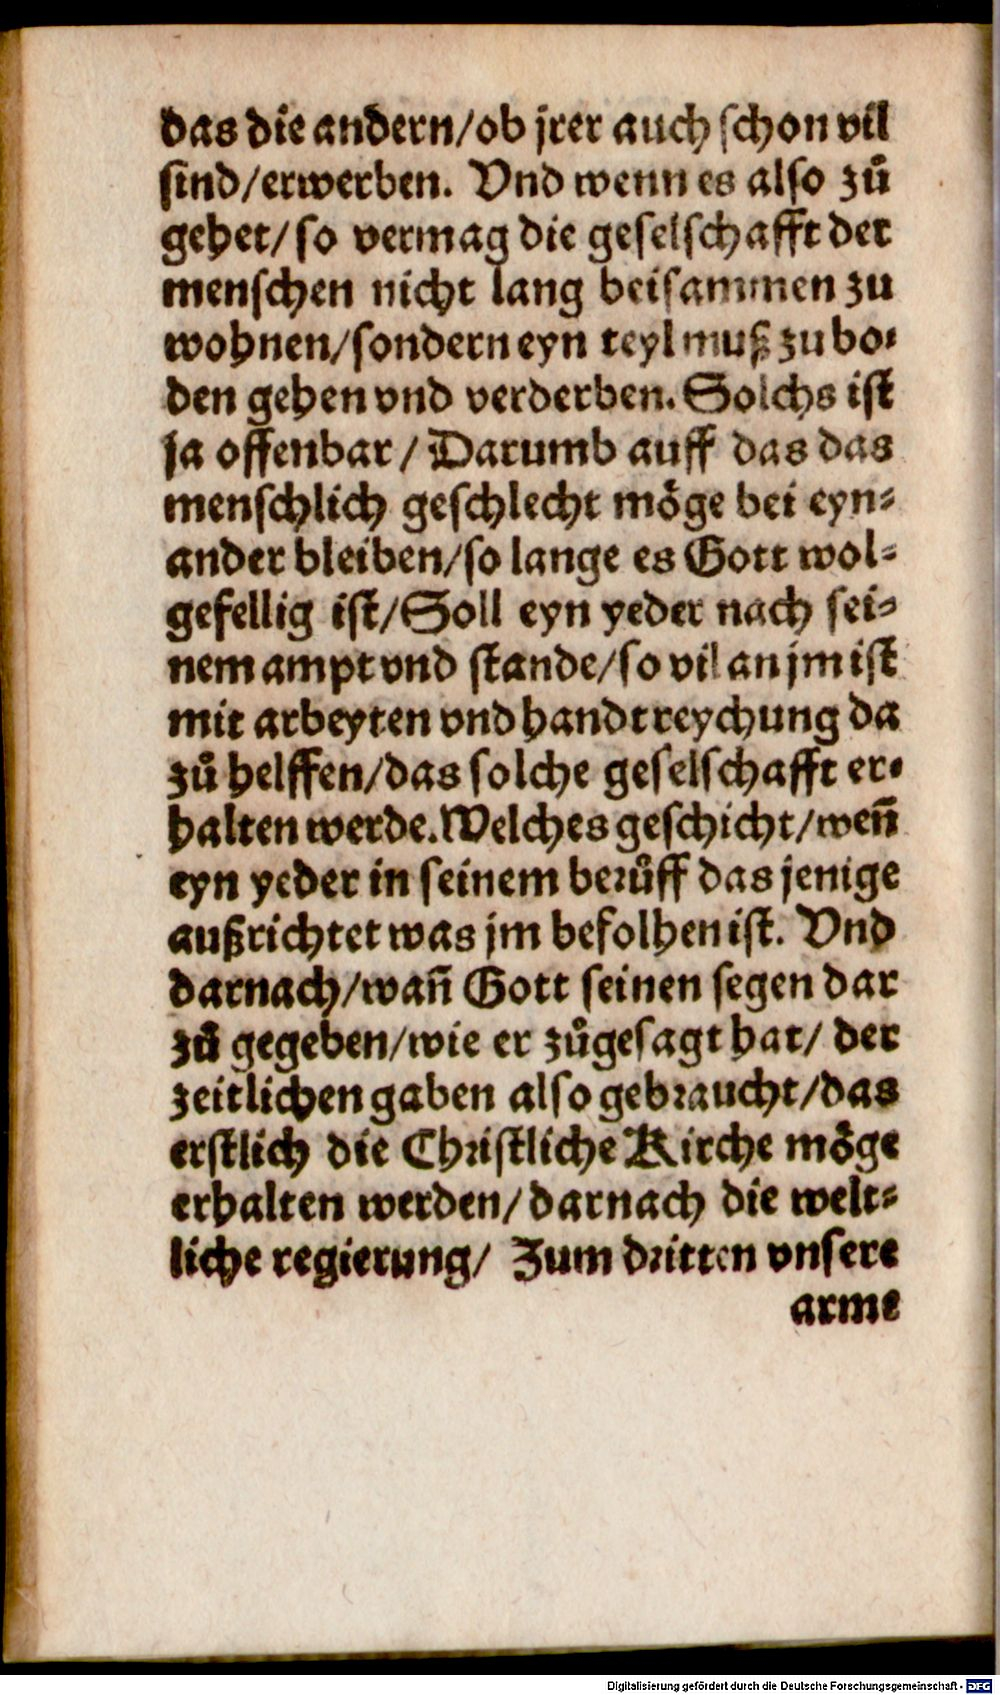 das die andern/ob jrer auch schon vil
sind/erwerben. Vnd wenn es also zů
gehet/so vermag die geselschafft der
menschen nicht lang beisammen zu
wohnen/sondern eyn teyl muß zu bo-
den gehen vnd verderben. Solchs ist
ja offenbar/Darumb auff das das
menschlich geschlecht möge bei eyn-
ander bleiben/so lange es Gott wol-
gefellig ist/Soll eyn yeder nach sei-
nem ampt vnd stande/so vil an jm ist
mit arbeyten vnd handtreychung da
zů helffen/das solche geselschafft er-
halten werde. Welches geschicht/wen̄
eyn yeder in seinem berůff das jenige
außrichtet was jm befolhen ist. Vnd
darnach/wan̄ Gott seinen segen dar
zů gegeben/wie er zůgesagt hat/der
zeitlichen gaben also gebraucht/das
erstlich die Christliche Kirche möge
erhalten werden/darnach die welt-
liche regierung/Zum dritten vnsere
arme
Digitalisierung gefördert durch die Deutsche Forschungsgemeinschaft - DFG